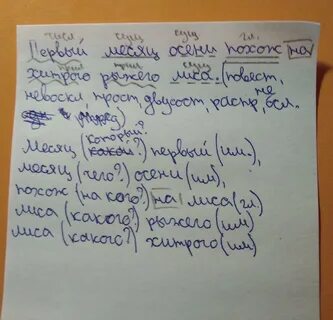 числ сущ сущ гл.
Первый месяц осени похож на
прил прил сущ
хитрого рыжего лиса. (повест,
невоскл прост, двусост, распр, не осл.
который?
Месяц (какой?) первый (им.),
месяц (чего?) осени (им),
похож (на кого?) на лиса (гл)
лиса (какого?) рыжего (им)
лиса (какого?) хитрого (им)